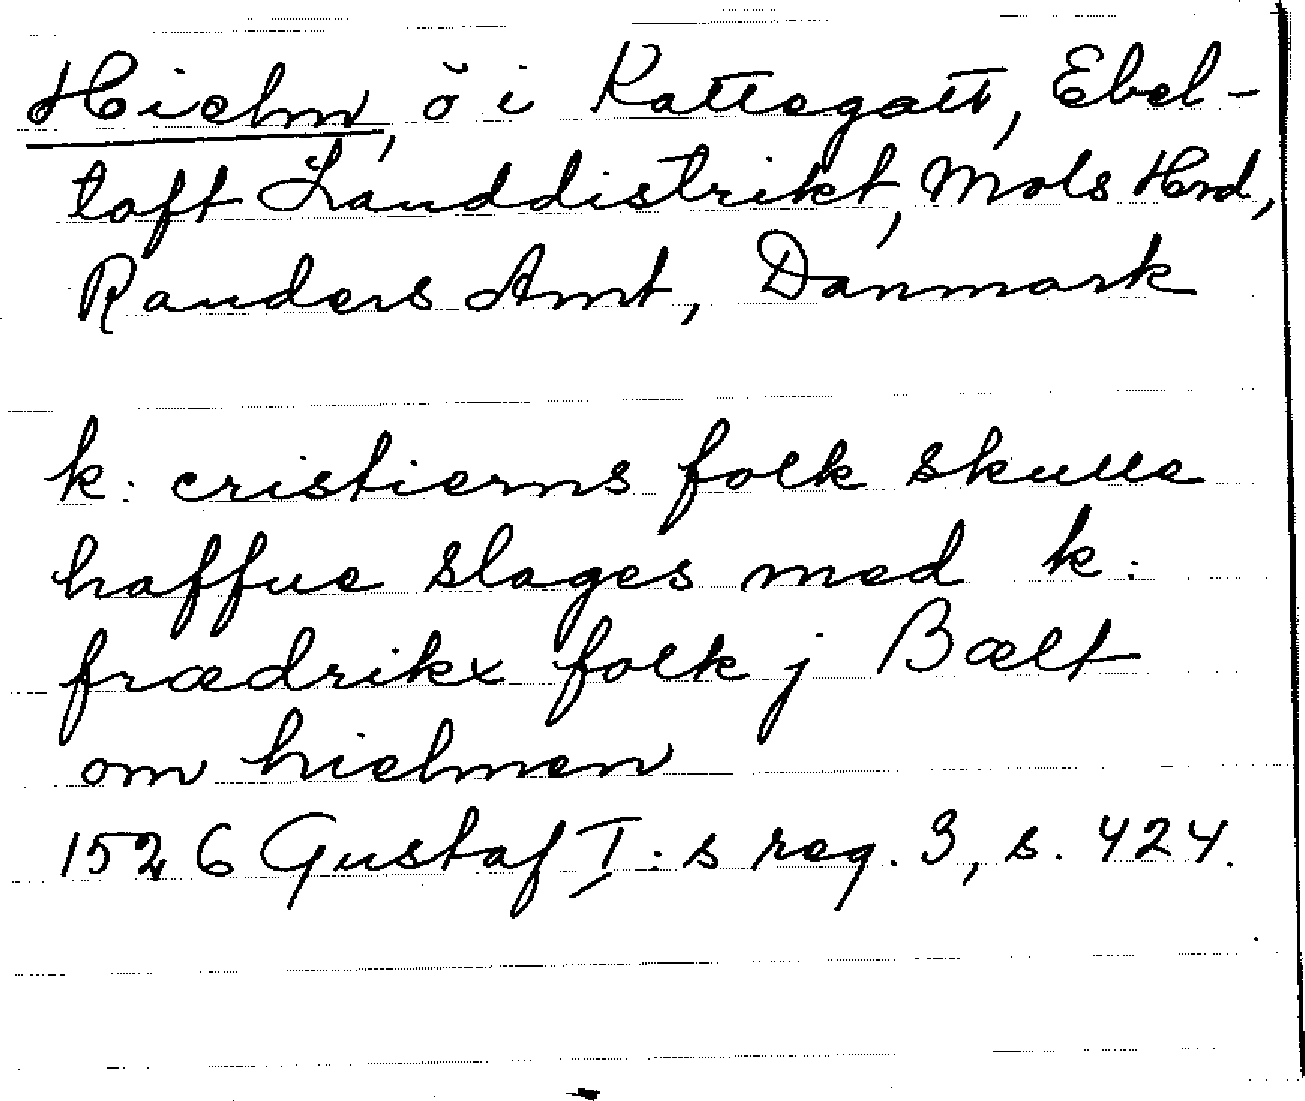 Hielm, ö i Kattegatt, Ebel-
toft Landdistrikt, Mols Hrd,
Randers Amt, Danmark
k. cristierns folk skulle
haffue slages med k.
frædrikx folk j Bælt
om hielmen
1526 Gustaf I:s reg. 3, s. 424.